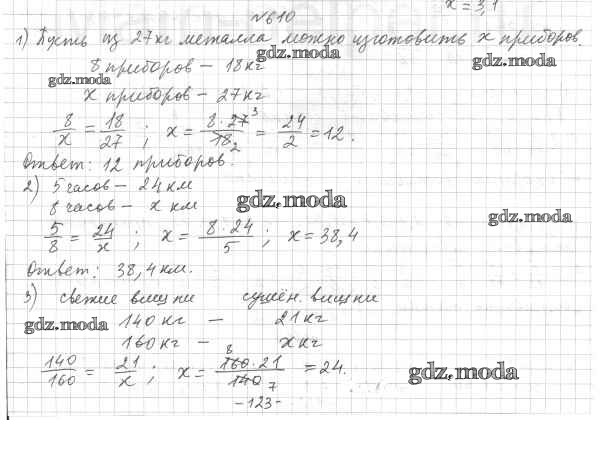 x = 3,1
№610
1) Пусть из 27 кг металла можно изготовить x приборов.
gdz.moda
gdz.moda
8 приборов – 18 кг
gdz.moda
x приборов – 27 кг
8/x = 18/27 ; x = 8·27 3/18 2 = 24/2 = 12.
Ответ: 12 приборов.
2) 5 часов – 24 км
8 часов – x км
gdz.moda
gdz.moda
5/8 = 24/x ; x = 8·24/5 ; x = 38,4
Ответ: 38,4 км.
3) свежие вишни сушён. вишни
gdz.moda
140 кг – 21 кг
160 кг – x кг
140/160 = 21/x ; x = 8 160·21/140 7 = 24.
gdz.moda
-123-